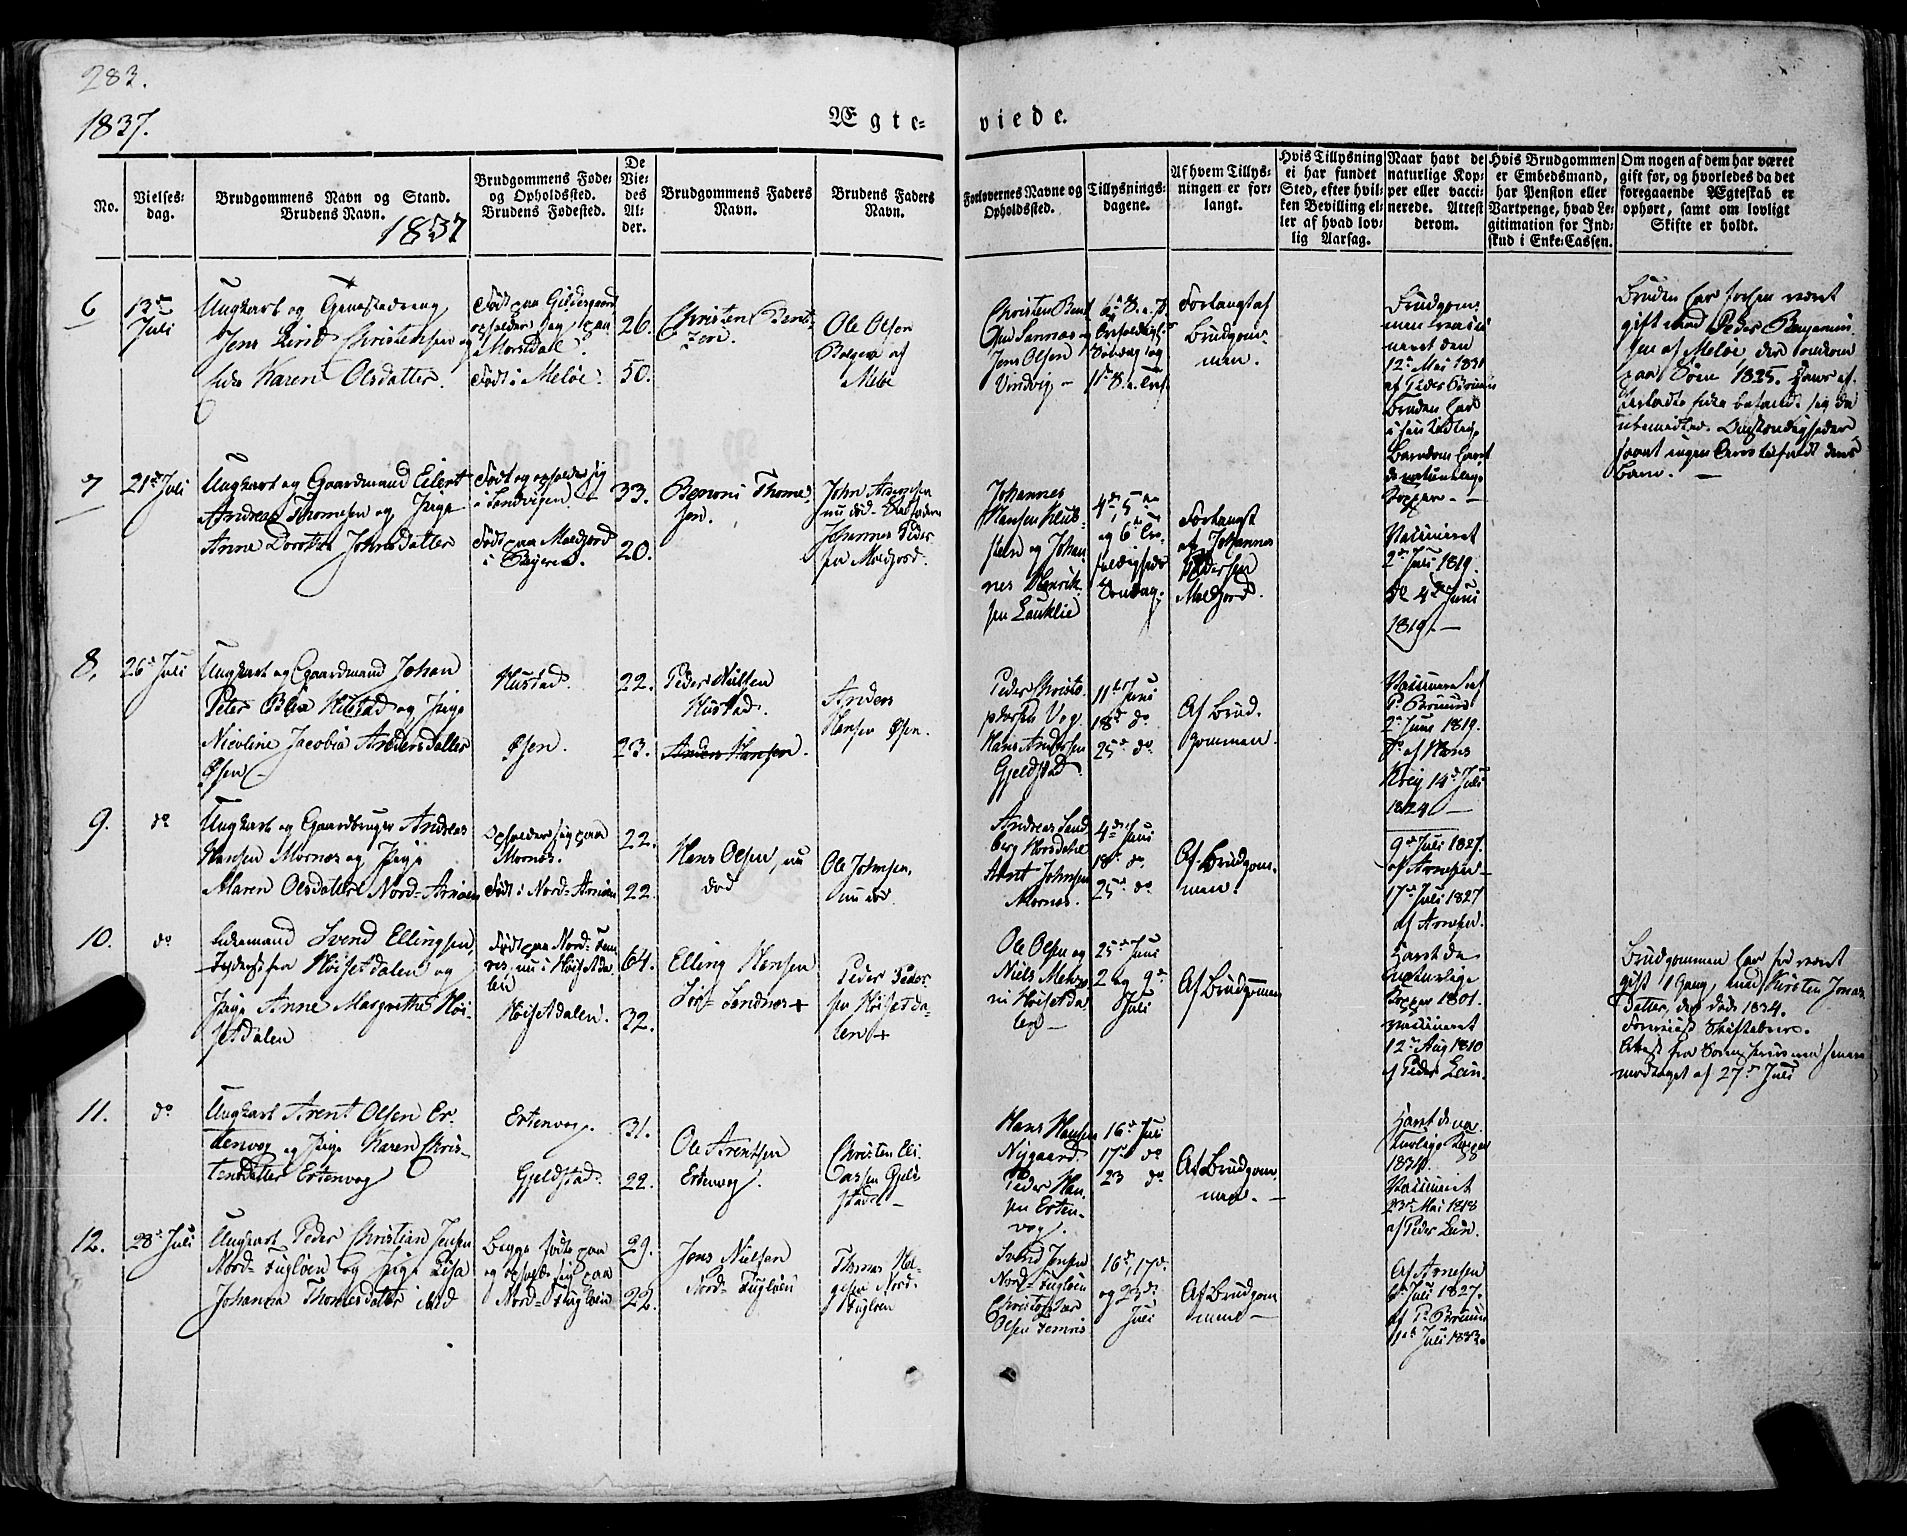 283.
1837.
Ægte-
viede.
No.
Vielses-
dag.
Brudgommens Navn og Stand.
Brudens Navn.
1837
Brudgommens Føde-
og Opholdssted.
Brudens Fødested.
De
Vie-
des
Al-
der.
Brudgommens Faders
Navn.
Brudens Faders
Navn.
Forlovernes Navne og
Opholdssted.
Tillysnings-
dagene.
Af hvem Tillys-
ningen er for-
langt.
Hvis Tillysning
ei har fundet
Sted, efter hvil-
ken Bevilling el-
ler af hvad lov-
lig Aarsag.
Naar havt de
naturlige Kop-
per eller vacci-
nerede. Attest
derom.
Hvis Brudgommen
er Embedsmand,
har Pension eller
Vartpenge, hvad Le-
gitimation for Ind-
skud i Enke-Cassen.
Om nogen af dem har været
gift før, og hvorledes da det
foregaaende Ægteskab er
ophørt, samt om lovligt
Skifte er holdt.
6
13de
Juli
Ungkarl og
Jens Lind Christensen og
Enke Karen Olsdatter.
Født paa Gildesgaard
opholder sig paa
Morsdal.
Født i Meløe.
26.
50.
Christen Bent-
sen.
Ole Olsen
af
Meløe
Christen Bent
Sannes og
Jens Olsen
Vindvig
Søndag og
Forlangt af
Brudgom-
men.
Brudgom-
men vacci-
neret den
12te Mai 1831
af Peder
Bruden havt
i sin
Barndom havt
de naturlige
Kopper. -
Bruden har forhen været
gift med Peder Benjamin-
sen af Meløe der omkom
paa Søen 1825.
Barn. -
7
21de Juli
Ungkarl og Gaardmand Eilert
Andreas Thomesen og Pige
Anne Dorthea Johnsdatter
Født og opholder sig
i Sandvigen
Født paa Meldfjord
i Beieren.
33.
20.
Benoni Thome-
sen.
John Arnesen
nu død
Johannes Peder-
sen Meldfjord.
Johannes
Hansen
og Johan-
nes Henrik-
sen Lauklie
4de, 5te
og 6te
Søndag.
Forlangt
af Johannes
Pedersen
Meldfjord.
Vaccineret
2den Juli 1819.
do 4de Juni
1819. -
8.
26de Juli
Ungkarl og Gaardmand Johan
Peter Blix Hustad og Pige
Nicoline Jacobia Andersdatter
Øsen
Hustad.
Øsen.
22.
23.
Peder Nilssen
Hustad.
Anders Hansen.
Anders
Hansen Øsen.
Peder Christo-
phersen Vog
Hans Andersen
Gjeldstad
11te Juni
18de do
25de do
Af Brud-
gommen.
Vaccineret af
P. Bruun
2den Juni 1819.
do af Mons
14de Juli
1824 -
9.
do
Ungkarl og Gaardbruger Andreas
Hansen Mornes og Pige
Maren Olsdatter Nord-Arnøen
Opholder sig paa
Mornes.
Født i Nord-Arnøen
22.
22.
Hans Olsen, nu
død
Ole Johnsen,
nu død.
Andreas Sand-
berg Horsdahl
Arnt Johnsen
Mornes.
4de Juni
18de do
25de do
Af Brudgom-
men.
9de Juli 1827.
af Arnesen -
17de Juli 1827
af Arnesen.
10.
do
Enkemand Svend Ellingsen,
Høisetdalen og
Pige Anne Margrethe Høi-
setdalen
Født paa Nord-Fem-
ris, nu i Høisetda-
len
Høisetdalen.
64.
32.
Elling Hansen
Sør-Sandnes +
Peder Peder-
sen Høisetda-
len +
Ole Olsen og
Niels
i Høisetda-
len -
25de Juni
2 og 9de
Juli
Af Brudgommen
Havt de
naturlige
Kopper 1801.
Vaccineret
12te Aug 1810
af Peder Lein.
Brudgommen har før været
gift 1 Gang, med Kirsten Jonas-
datter, der døde 1834.
Skiftebrev.
Attest fra Sorenskriveren senere
modtaget af 27de Juli
11.
do
Ungkarl Arent Olsen Er-
tenvog og Pige Karen Chris-
tensdatter Ertenvog
Ertenvog.
Gjeldstad.
31.
22.
Ole Arentsen
Ertenvog.
Christen Eli-
assen Gjeld-
stad -
Hans Hansen
Nygaard
Peder Han-
sen Erten-
vog.
16de Juli
17de do
23 do
Af Brudgom-
men. -
Havt de na-
turlige Kopper
Vaccineret
23de Mai 1818
af Peder Lein.
12.
28de Juli
Ungkarl Peder Christian Jensen
Nord-Fugløen og Pige Lisa
Johanna Thomesdatter ibid
Begge fødte paa
og opholde sig paa
Nord-Fugløen
29.
22.
Jens Nielsen
Nord-Fugløen
Thomes Hel-
gesen Nord-
Fugløen
Svend Jensen
Nord-Fugløen
Christopher
Olsen Femris
16de, 17de
og 23de
Juli
Af Brudgom-
men -
Af Arnesen
6te Juli 1827.
af P. Bruun
11te Juli 1833.